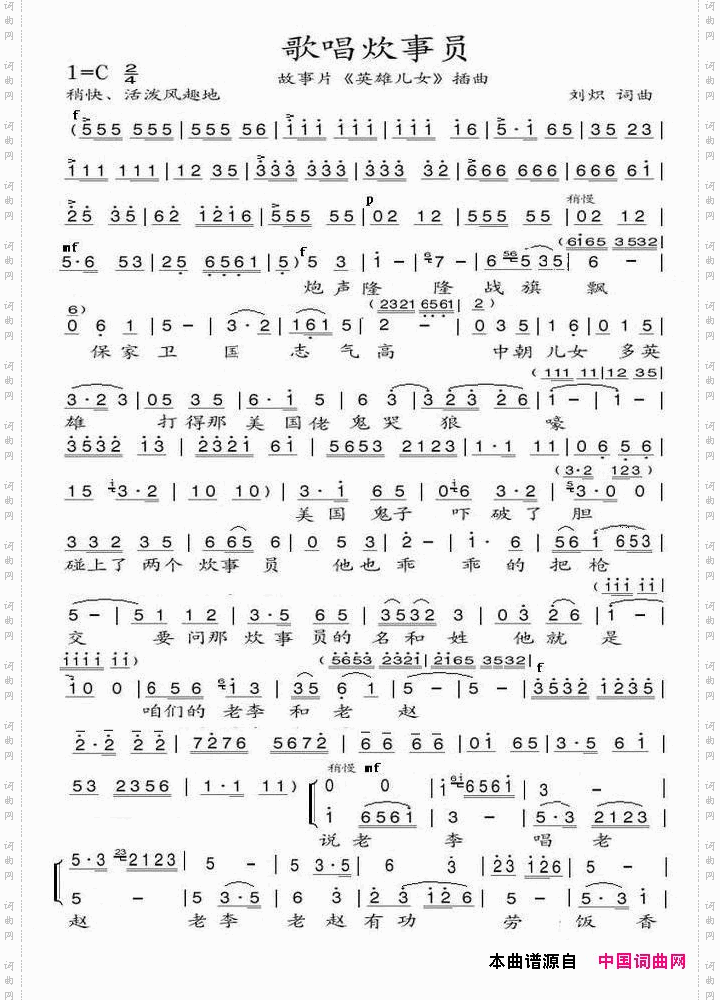 歌唱炊事员
1=C 2/4
故事片《英雄儿女》插曲
稍快、活泼风趣地
刘炽 词曲
f
(555 555|555 56|111 111|111 16|5·1 65|35 23|
111 111|12 35|333 333|333 32|666 666|666 61|
p
稍慢
25 35|62 1216|555 55|02 12|555 55|02 12|
mf
f
(6165 3532|
5·6 53|25 6561|5) 5 3|1 -|67 -|6 5 35|6 -
炮声隆 隆战旗 飘
(2321 6561|2)
6)
0 6 1|5 -|3·2|161 5|2 -|0 3 5|1 6|0 1 5|
保家卫 国 志气高 中朝儿女 多英
(111 11|12 35|
3·2 3|05 35|6·1 5|6 3|3 2 3 26|1 -|1 -|
雄 打得那美国佬鬼哭狼 嚎
3532 13|2321 61|5653 2123|1·1 11|0 6 5 6|
(3·2 123)
15 3·2|10 10)|3·1 65|016 3·2|3·0 0|
美国鬼子 吓破了胆
332 35|665 6|0 5 3|2 -|6 - 5|56 1 653|
碰上了两个炊事员 他也乖 乖的把枪
(111 11|
5 -|51 12|3·5 65|3532 3|03 26|1 -
交 要问那炊事员的名和姓 他就是
1111 11)
(5653 2321|2165 3532|
f
10 0|656 13|35 6|5 -|5 -|3532 1235|
咱们的老李和老 赵
2·2 22|7276 5672|66 66|01 65|3·5 61|
稍慢 mf
53 2356|1·1 11)
0 0|1 6561|3 -
1 6561|3 -|5·3 2123|
说老 李 唱老
5·3 2123|5 -|5 3·5|6 3|23 126|5 -
5 -|5 3·5|6 3|2 3 126|5 -|5· 35|
赵 老李老赵有功 劳饭香
本曲谱源自 中国词曲网
词曲网